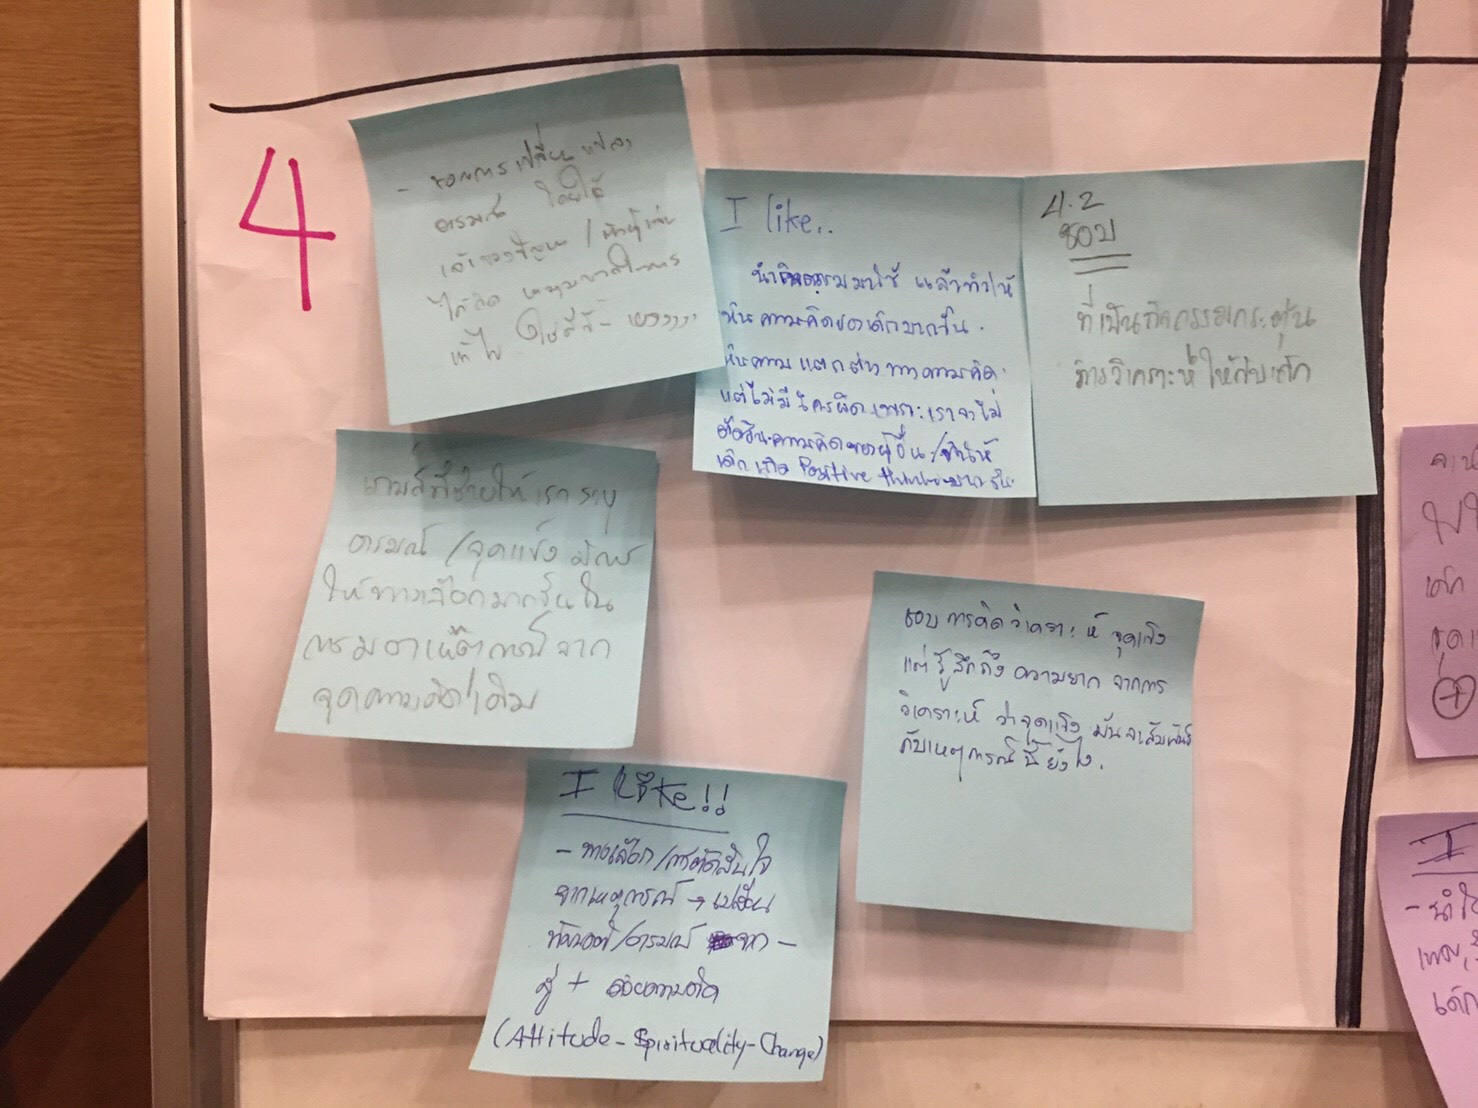 4
- ชอบการเปลี่ยนแปลง
อารมณ์ โดยให้
เจ้าของปัญหา /
ได้คิด
แก้ไข
I like..
นำกิจกรรมมาใช้ แล้วทำให้
เห็นความคิดของเด็กมากขึ้น.
เห็นความแตกต่างทางความคิด
แต่ไม่มีใครผิด เพราะเราจะไม่
ตัดสินความคิดของผู้อื่น/ทำให้
เด็กเกิด Positive thinking มากขึ้น
4.2
ชอบ
ที่เป็นกิจกรรมกระตุ้น
การวิเคราะห์ให้กับเด็ก
เกมส์ที่ช่วยให้เราระบุ
อารมณ์ /จุดแข็ง มีการ
ให้ทางเลือกมากขึ้นใน
การมองเหตุการณ์จาก
จุดความคิดเดิม
ชอบการคิดวิเคราะห์ จุดแข็ง
แต่รู้สึกถึงความยาก จากการ
วิเคราะห์ ว่าจุดแข็ง มันจะสัมพันธ์
กับเหตุการณ์นี้ยังไง.
I like!!
- ทางเลือก/การตัดสินใจ
จากเหตุการณ์ → เปลี่ยน
ทัศนคติ/อารมณ์ จาก -
สู่ + ด้วยความคิด
(Attitude - Spirituality - Change)
เด็ก
+
I
- นำ
เด็ก